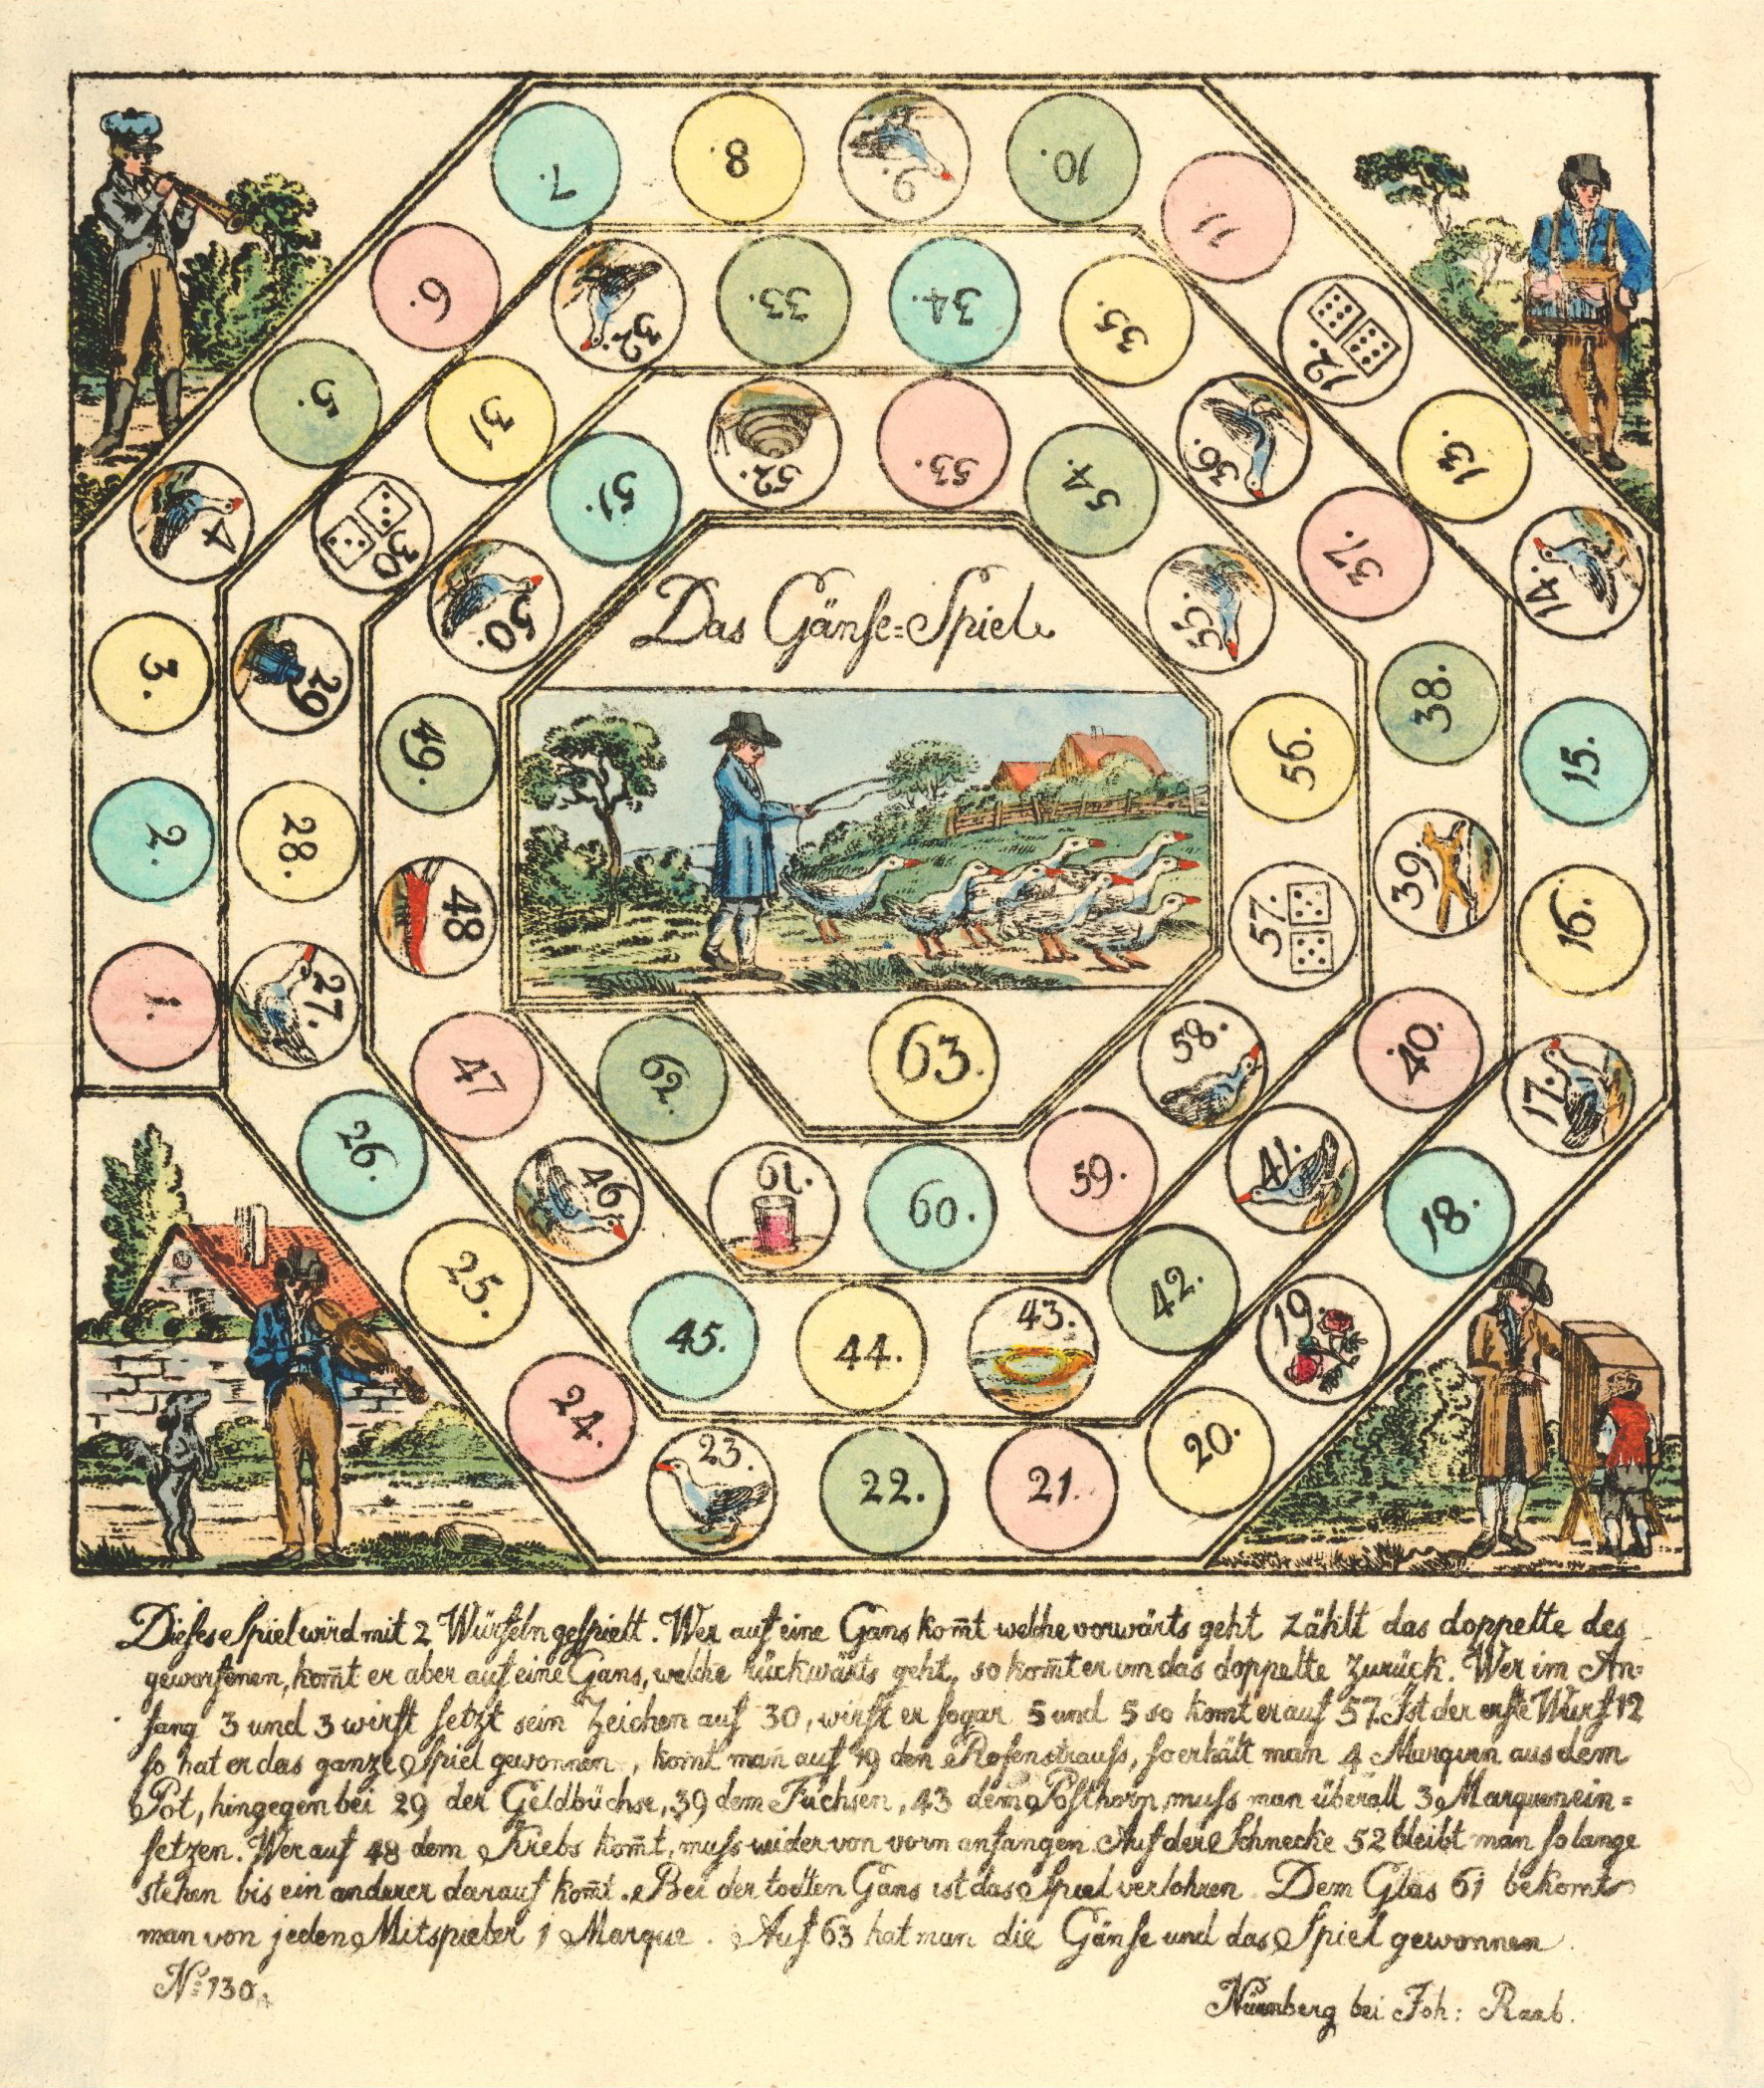 Das Gänse=Spiel.
1.
2.
3.
4
5.
6.
7.
8.
9.
10.
11
12.
13.
14.
15.
16.
17.
18.
19.
20.
21.
22.
23.
24.
25.
26.
27.
28.
29
30
31
32.
33.
34.
35.
36.
37.
38.
39.
40.
41.
42.
43.
44.
45.
46
47
48
49.
50.
51.
52.
53.
54.
55.
56.
57.
58.
59.
60.
61.
62.
63.
Dieses Spiel wird mit 2 Würfeln gespielt. Wer auf eine Gans kom̄t welche vorwärts geht zählt das doppelte des
geworfenen, kom̄t er aber auf eine Gans, welche rückwärts geht, so kom̄t er um das doppelte zurück. Wer im An=
fang 3 und 3 wirft setzt sein Zeichen auf 30, wirft er sogar 5 und 5 so komt er auf 57. Ist der erste Wurf 12
so hat er das ganze Spiel gewonnen, komt man auf 19 den Rosenstrauss, so erhält man 4 Marquen aus dem
Pot, hingegen bei 29 der Geldbüchse, 39 dem Füchsen, 43 dem Posthorn, muss man überall 3 Marquen ein=
setzen. Wer auf 48 dem Krebs kom̄t, muss wider von vorn anfangen. Auf der Schnecke 52 bleibt man so lange
stehen bis ein anderer darauf kom̄t. Bei der todten Gans ist das Spiel verlohren. Dem Glas 61 bekomt
man von jeden Mitspieler 1 Marque. Auf 63 hat man die Gänse und das Spiel gewonnen.
No. 130.
Nürnberg bei Joh: Raab.